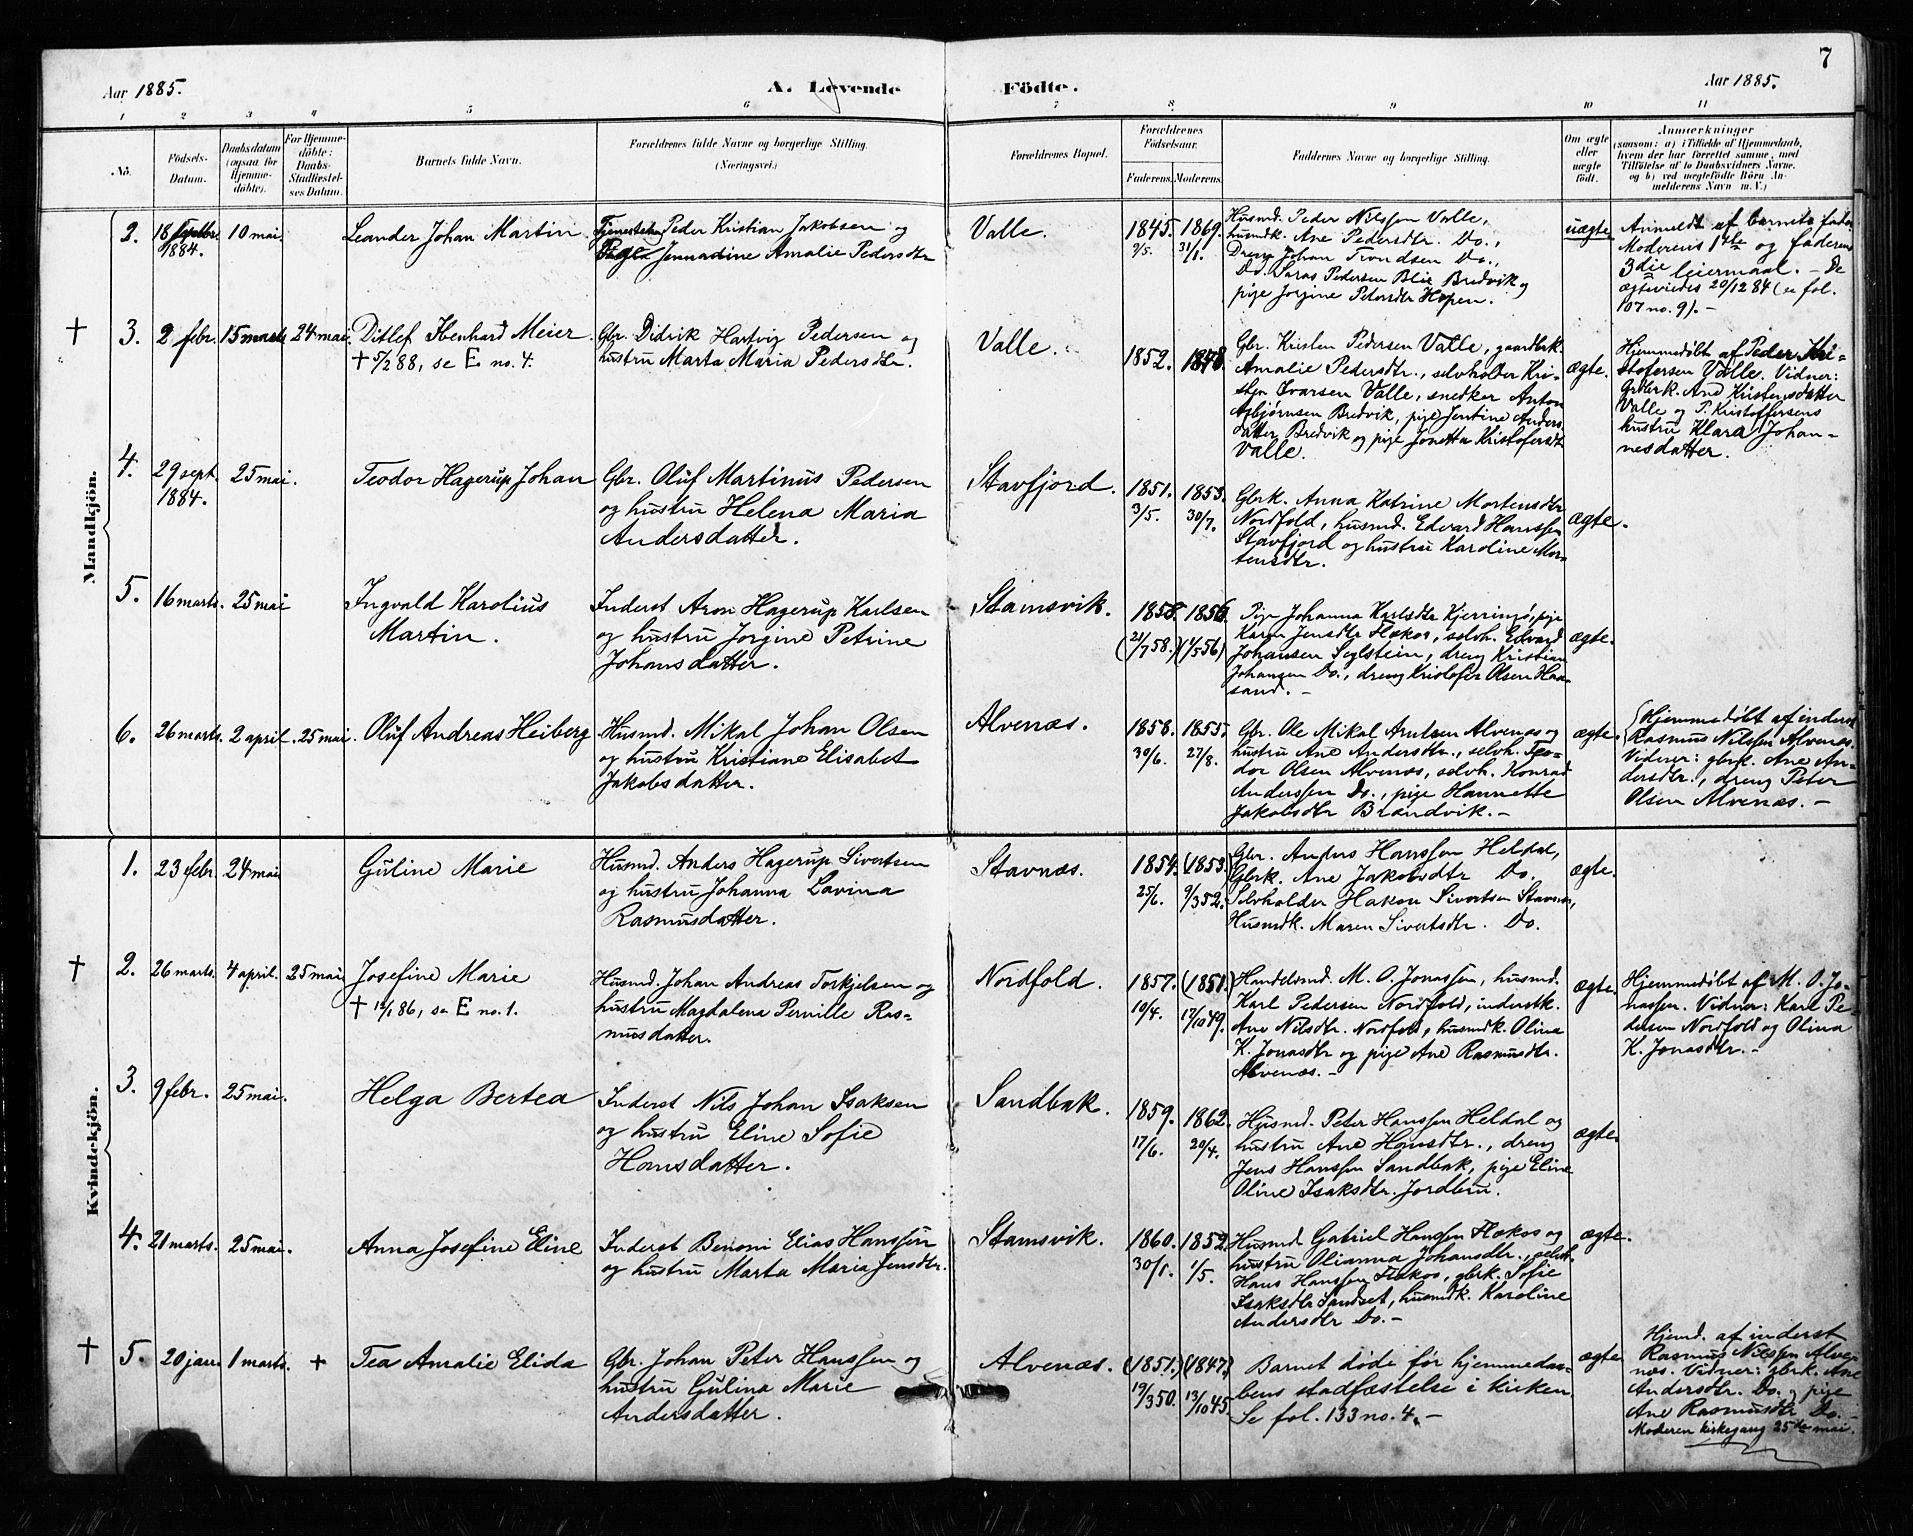 7
Aar 1885.
A. Levende Födte.
Aar 1885.
1 2 3 4 5 6 7 8 9 10 11
No.
Födsels-Datum.
Daabsdatum (ogsaa for Hjemme-döbte).
For Hjemme-döbte: Daabs-Stadfæstel-ses Datum.
Barnets fulde Navn.
Forældrenes fulde Navne og borgerlige Stilling.
(Næringsvei.)
Forældrenes Bopæl.
Forældrenes Födselsaar.
Faderens. Moderens.
Faddernes Navne og borgerlige Stilling.
Om ægte eller uægte födt.
Anmærkninger
(saasom: a) i Tilfælde af Hjemmedaab,
hvem der har forrettet samme, med
Tilföielse af to Daabsvidners Navne.
og b) ved uægtefödte Börn An-
melderens Navn m. V.)
Mandkjön.
2. 18 1884. 10 mai. Leander Johan Martin
Peder Kristian Jakobsen og
Pige Jennadine Amalie Pedersdtr
Valle.
1845. 1869.
2/5. 31/1.
Husmd. Peder Nilssen Valle,
husmdk. Ane Pedersdtr. Do.,
Dreng Johan Trondsen Do.,
Do. Saras Pedersen Blie Bredvik og
pige Jorgine Pedersdtr Hopen.
uægte
Anmeldt af barnets fader
Moderens 1ste og faderens
3die leiermaal. – De
ægteviedes 20/12 84 (se fol.
107 no. 9). –
† 3. 2 febr. 15 marts 24 mai. Ditlef Ibenhard Meier
† 5/2 88, se E no. 4.
Gbr. Didrik Hartvig Pedersen og
hustru Marta Maria Pedersdtr.
Valle.
1852. 1848.
Gbr. Kristen Pedersen Valle, gaardbrk.
Amalie Pedersdtr., selvholder Kri-
sten Ivarsen Valle, snedker Anton
Asbjørnsen Bredvik, pige Jentine Anders
datter Bredvik og pige Jonetta Kristofersdt
Valle.
ægte.
Hjemmedøbt af Peder Kri-
stofersen Valle. Vidner:
Grdbrk. Ane Kristensdatter
Valle og P. Kristoffersens
hustru Klara Johan-
nesdatter.
4. 29 sept. 1884. 25 mai. Teodor Hagerup Johan
Gbr. Oluf Martinus Pedersen
og hustru Helena Maria
Andersdatter.
Stavfjord.
1851. 1853.
3/5. 30/7.
Gbrk. Anna Katrine Mortensdtr
Nordfold, husmd. Edvard Hanssen
Stavfjord og hustru Karoline Mor-
tensdtr.
ægte.
5. 16 marts. 25 mai Ingvald Karolius
Martin.
Inderst Aron Hagerup Karlsen
og hustru Jorgine Petrine
Johansdatter.
Stamsvik.
1858. 1856.
(21/7 58.) (1/5 56)
Pige Johanna Karlsdtr Kjerringø, pige
Karen Jensdtr Flækos, selvh. Edvard
Johansen Seglstein, dreng Kristian
Johansen Do., dreng Kristofer Olsen Haa-
sand. –
ægte.
6. 26 marts. 2 april. 25 mai. Oluf Andreas Heiberg
Husmd. Mikal Johan Olsen
og hustru Kristiane Elisabet
Jakobsdatter.
Alvenæs.
1858. 1855.
30/6. 27/8.
Gbr. Ole Mikal Arntsen Alvenæs og
hustru Ane Andersdtr., selvh. Teo-
dor Olsen Alvenæs, selvh. Konrad
Anderssen Do., pige Hannette
Jakobsdtr Brændvik. –
ægte.
Hjemmedøbt af inderst
Rasmus Nilssen Alvenæs.
Vidner: gbrk. Ane An-
dersdtr., dreng Peter
Olsen Alvenæs. –
Kvindekjön.
1. 23 febr. 24 mai Guline Marie
Husmd. Anders Hagerup Sivertsen
og hustru Johanna Lavina
Rasmusdatter.
Stavnæs.
1854. (1853.)
25/6. 9/3 52.
Gbr. Anders Hanssen Heldal,
Gbrk. Ane Jakobsdtr Do.
Selvholder Hakon Sivertsen Stavnæs,
Husmdk. Maren Sivertsdtr. Do.
ægte.
† 2. 26 marts. 4 april. 25 mai Josefine Marie
† 12/1 86, se E no. 1.
Husmd. Johan Andreas Torkjelsen og
hustru Magdalena Pernille Ras-
musdatter.
Nordfold.
1857. (1851.)
10/4. 17/10 49.
Handelsmd. M. O. Jonassen, husmd.
Karl Pedersen Nordfold, inderstk.
Ane Nilsdtr. Nordfold, husmdk. Olina
K. Jonasdtr og pige Ane Rasmusdtr.
Alvenæs. –
ægte.
Hjemmedøbt af M. O. Jo-
nassen. Vidner: Karl Pe-
dersen Nordfold og Olina
K. Jonasdtr. –
3. 9 febr. 25 mai. Helga Bertea
Inderst Nils Johan Isaksen
og hustru Eline Sofie
Hansdatter.
Sandbak.
1859. 1862.
17/6. 20/4.
Husmd. Peter Hanssen Heldal og
hustru Ane Hansdtr., dreng
Jens Hanssen Sandbak, pige Eline
Oline Isaksdtr. Jordbru.
ægte.
4. 21 marts. 25 mai. Anna Josefine Eline
Inderst Benoni Elias Hanssen
og hustru Marta Maria Jensdtr.
Stamsvik.
1860. 1852.
30/1. 1/5.
Husmd. Gabriel Hanssen Flækos og
hustru Olianna Johansdtr., selvh.
Hans Hanssen Flækos, gbrk. Sofie
Isaksdtr Sandset, husmdk. Karoline
Andersdtr Do. –
ægte.
† 5. 20 jan. 1 marts. + Tea Amalie Elida
Gbr. Johan Peter Hanssen og
hustru Gulina Marie
Andersdatter.
Alvenæs.
(1851.) (1847.)
19/3 50. 13/10 45.
Barnet døde før hjemmedaa-
bens stadfæstelse i kirken.
Se fol. 133 no. 4. –
ægte
Hjemd. af inderst
Rasmus Nilssen Alve-
næs. Vidner: gbrk. Ane
Andersdtr. Do. og pige
Ane Rasmusdtr Do. –
Moderen kirkegang 25de mai.